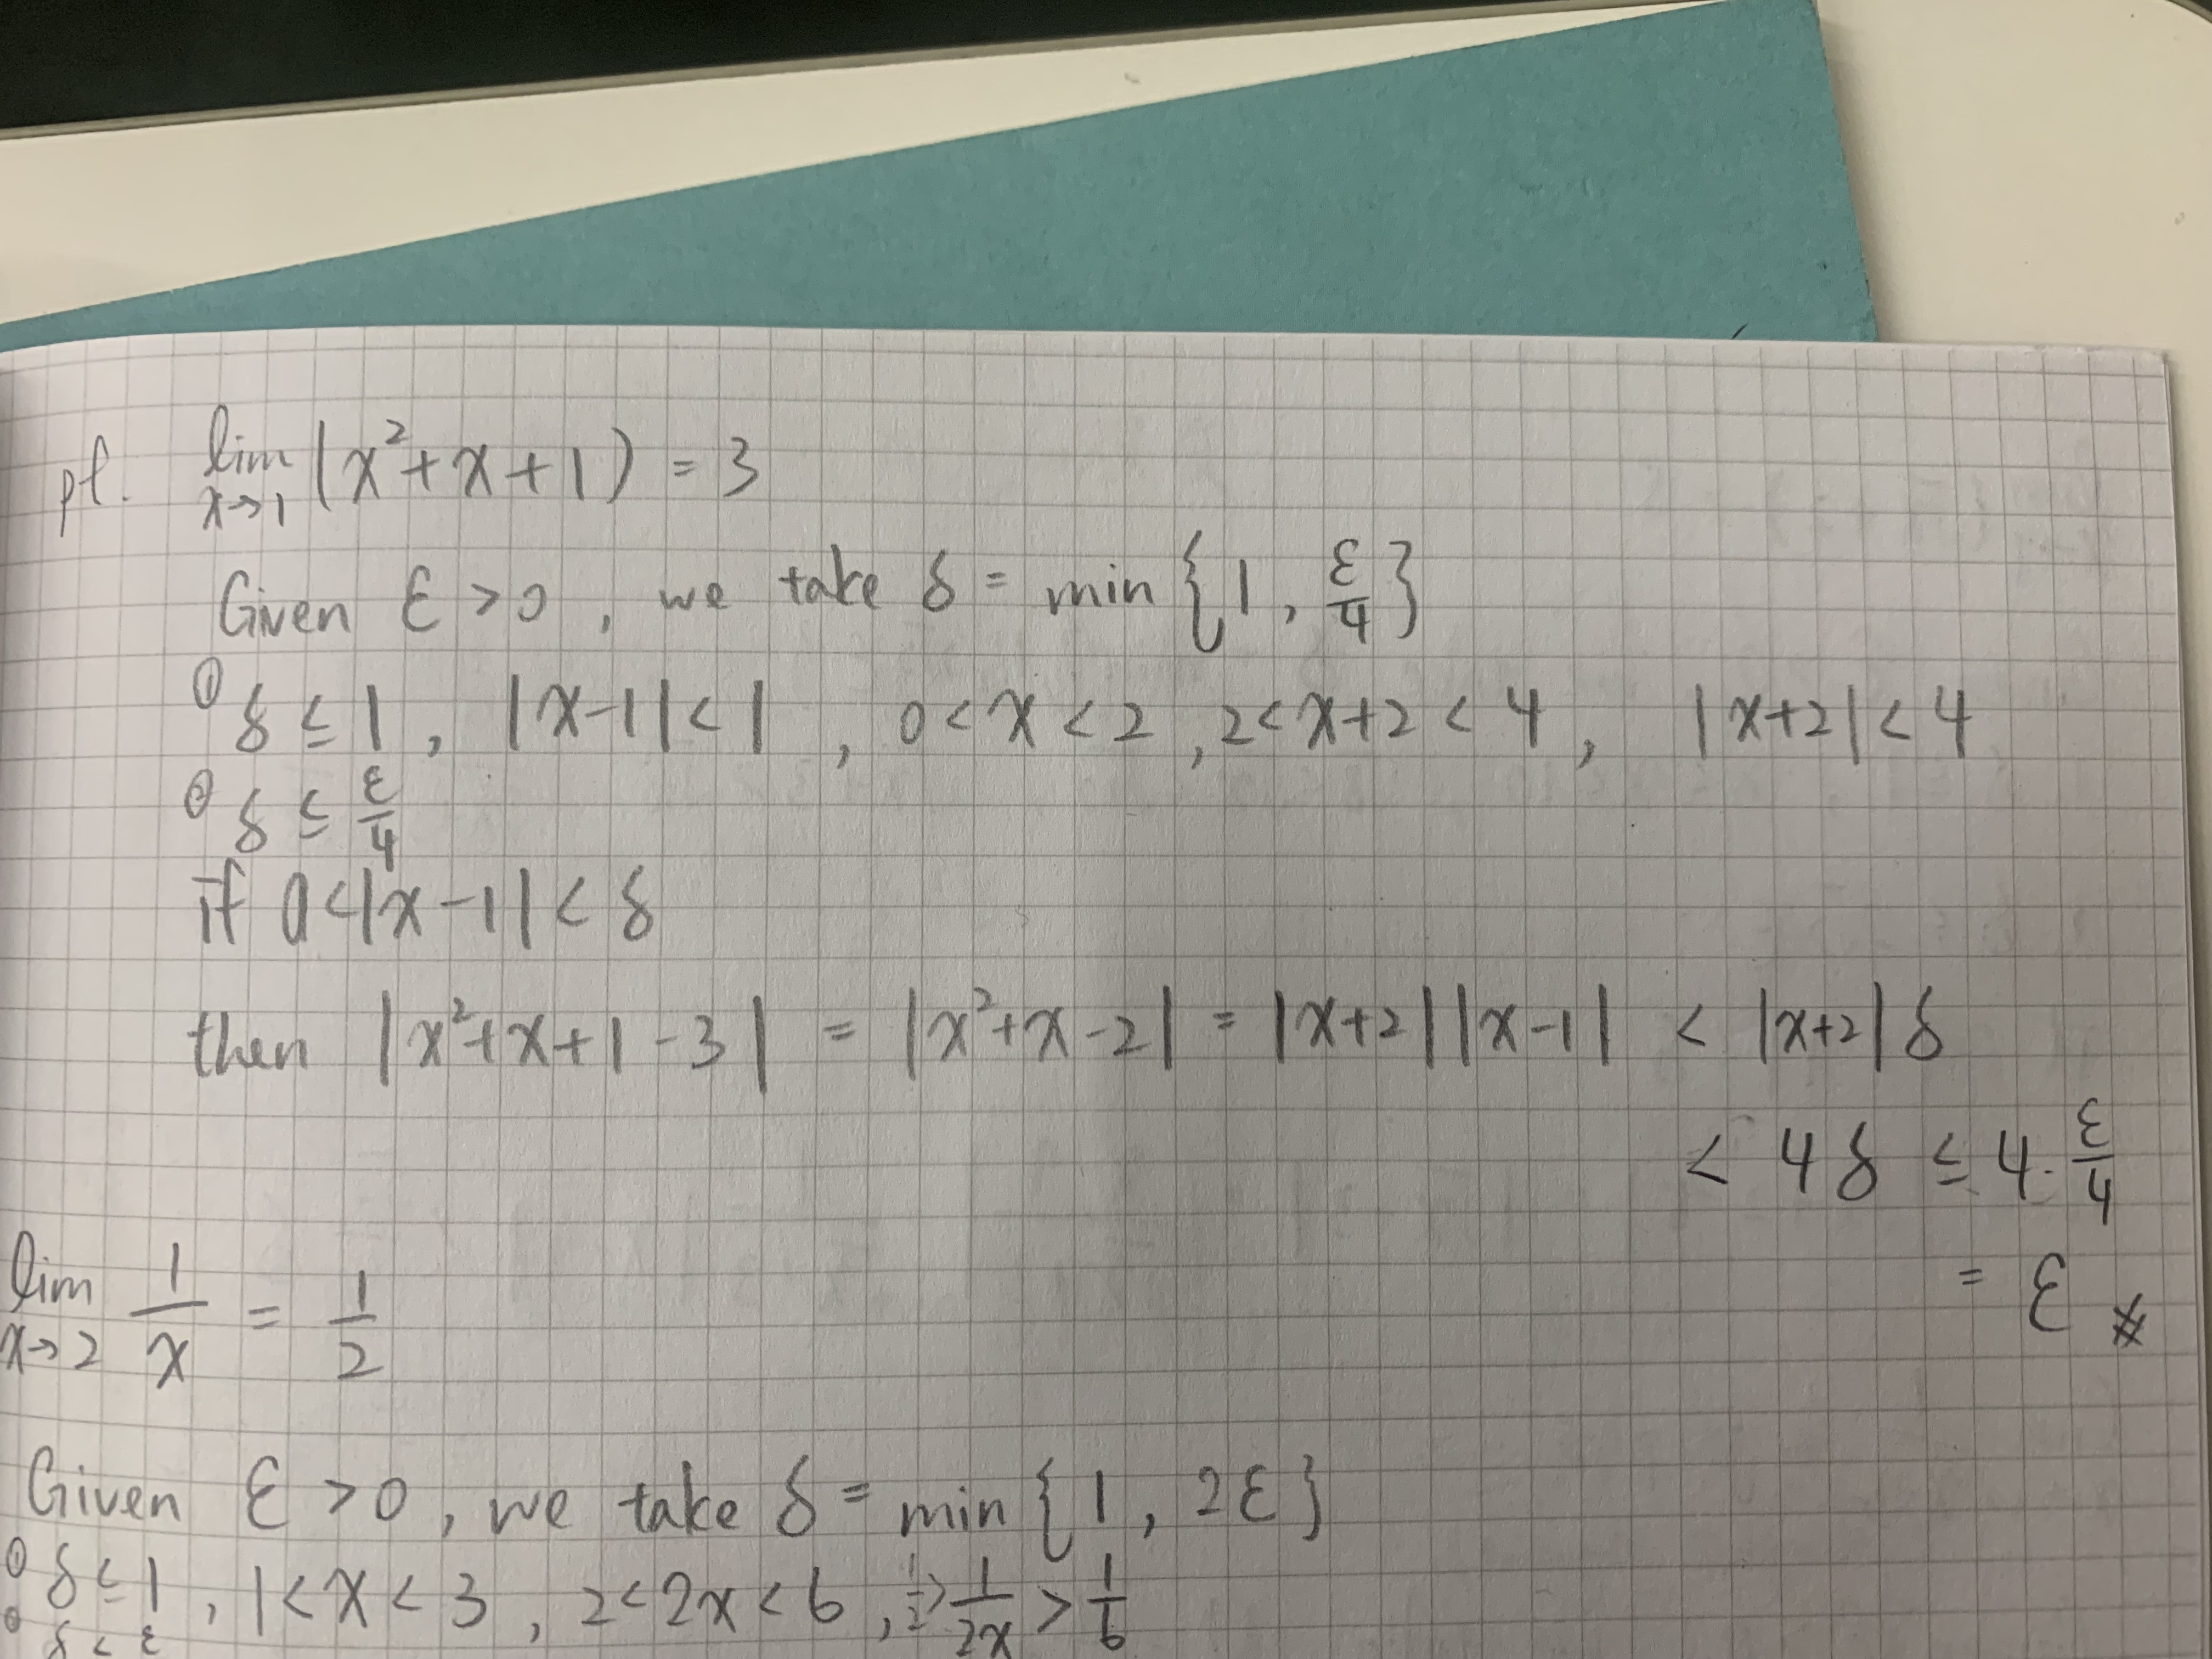 pf. lim x→1 (x² + x + 1) = 3
Given ε > 0, we take δ = min {1, ε/4}
① δ ≤ 1, |x-1| < 1, 0 < x < 2, 2 < x+2 < 4, |x+2| < 4
② δ ≤ ε/4
if 0 < |x-1| < δ
then |x²+x+1-3| = |x²+x-2| = |x+2||x-1| < |x+2|δ
< 4δ ≤ 4·ε/4
= ε #
lim x→2 1/x = 1/2
Given ε > 0, we take δ = min {1, 2ε}
① δ ≤ 1, 1 < x < 3, 2 < 2x < 6, 1/2x > 1/6